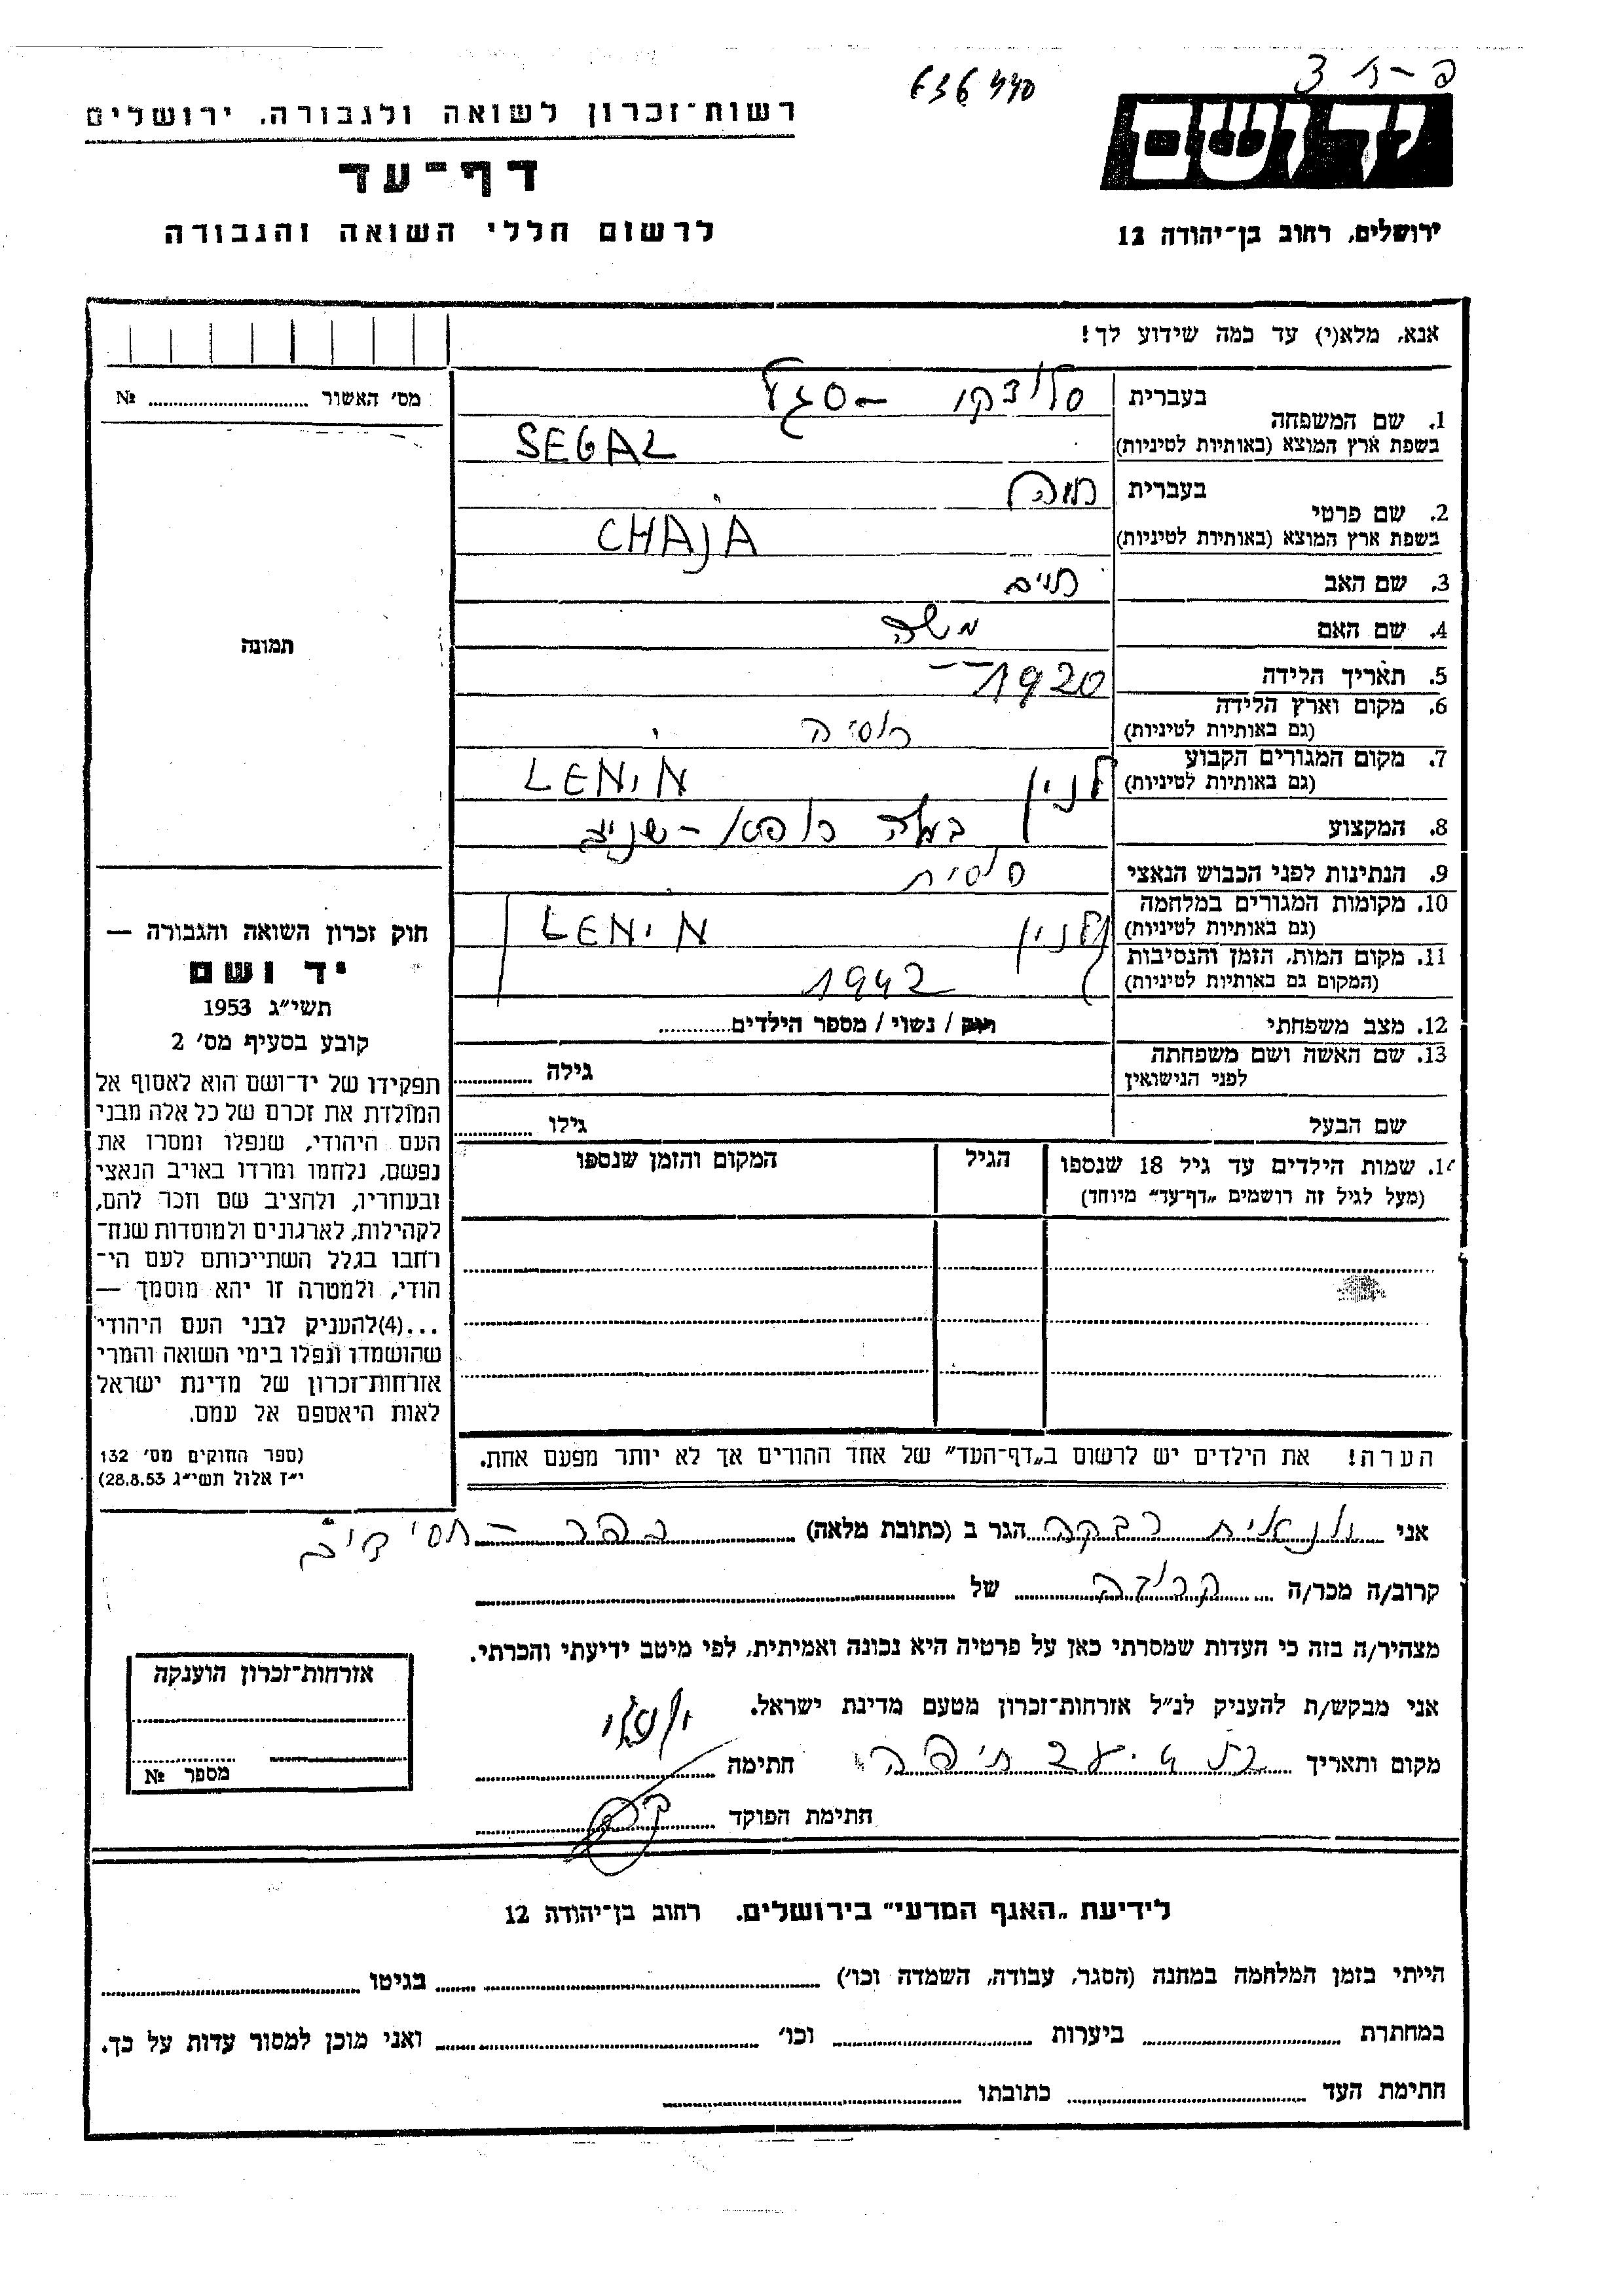 פ-ד 3
636440
רשות־זכרון לשואה ולגבורה, ירושלים
יד ושם
דף־עד
לרשום חללי השואה והגבורה
ירושלים, רחוב בן־יהודה 12
אנא, מלא(י) עד כמה שידוע לך!
מס׳ האשור № 
1. שם המשפחה בעברית סלוצקי – סגל
בשפת ארץ המוצא (באותיות לטיניות) SEGAL
2. שם פרטי בעברית חיה
בשפת ארץ המוצא (באותיות לטיניות) CHAJA
3. שם האב חיים
4. שם האם משה
5. תאריך הלידה 1920
6. מקום וארץ הלידה (גם באותיות לטיניות) רוסיה
7. מקום המגורים הקבוע (גם באותיות לטיניות) לנין LENIN
8. המקצוע
9. הנתינות לפני הכבוש הנאצי
10. מקומות המגורים במלחמה (גם באותיות לטיניות) לנין LENIN
11. מקום המות, הזמן והנסיבות (המקום גם באותיות לטיניות) 1942
12. מצב משפחתי רוק / נשוי / מספר הילדים
13. שם האשה ושם משפחתה לפני הנישואין גילה
שם הבעל גילו
14. שמות הילדים עד גיל 18 שנספו
(מעל לגיל זה רושמים „דף־עד״ מיוחד)
הגיל
המקום והזמן שנספו
תמונה
חוק זכרון השואה והגבורה —
יד ושם
תשי״ג 1953
קובע בסעיף מס׳ 2
תפקידו של יד־ושם הוא לאסוף אל
המולדת את זכרם של כל אלה מבני
העם היהודי, שנפלו ומסרו את
נפשם, נלחמו ומרדו באויב הנאצי
ובעוזריו, ולהציב שם וזכר להם,
לקהילות, לארגונים ולמוסדות שנח־
רחבו בגלל השתייכותם לעם הי־
הודי, ולמטרה זו יהא מוסמך —
...(4)להעניק לבני העם היהודי
שהושמדו ונפלו בימי השואה והמרי
אזרחות־זכרון של מדינת ישראל
לאות היאספם אל עמם.
(ספר החוקים מס׳ 132
י״ז אלול תשי״ג 28.8.53)
הערה! את הילדים יש לרשום ב„דף־העד״ של אחד ההורים אך לא יותר מפעם אחת.
אני רבקה הגר ב (כתובת מלאה) כפר – חסידים
קרוב/ה מכר/ה קרובה של
מצהיר/ה בזה כי העדות שמסרתי כאן על פרטיה היא נכונה ואמיתית, לפי מיטב ידיעתי והכרתי.
אני מבקש/ת להעניק לנ״ל אזרחות־זכרון מטעם מדינת ישראל.
מקום ותאריך חיפה חתימה
חתימת הפוקד
אזרחות־זכרון הוענקה
מספר №
לידיעת „האגף המדעי״ בירושלים, רחוב בן־יהודה 12
הייתי בזמן המלחמה במחנה (הסגר, עבודה, השמדה וכו׳) בגיטו
במחתרת ביערות וכו׳ ואני מוכן למסור עדות על כך.
חתימת העד כתובתו